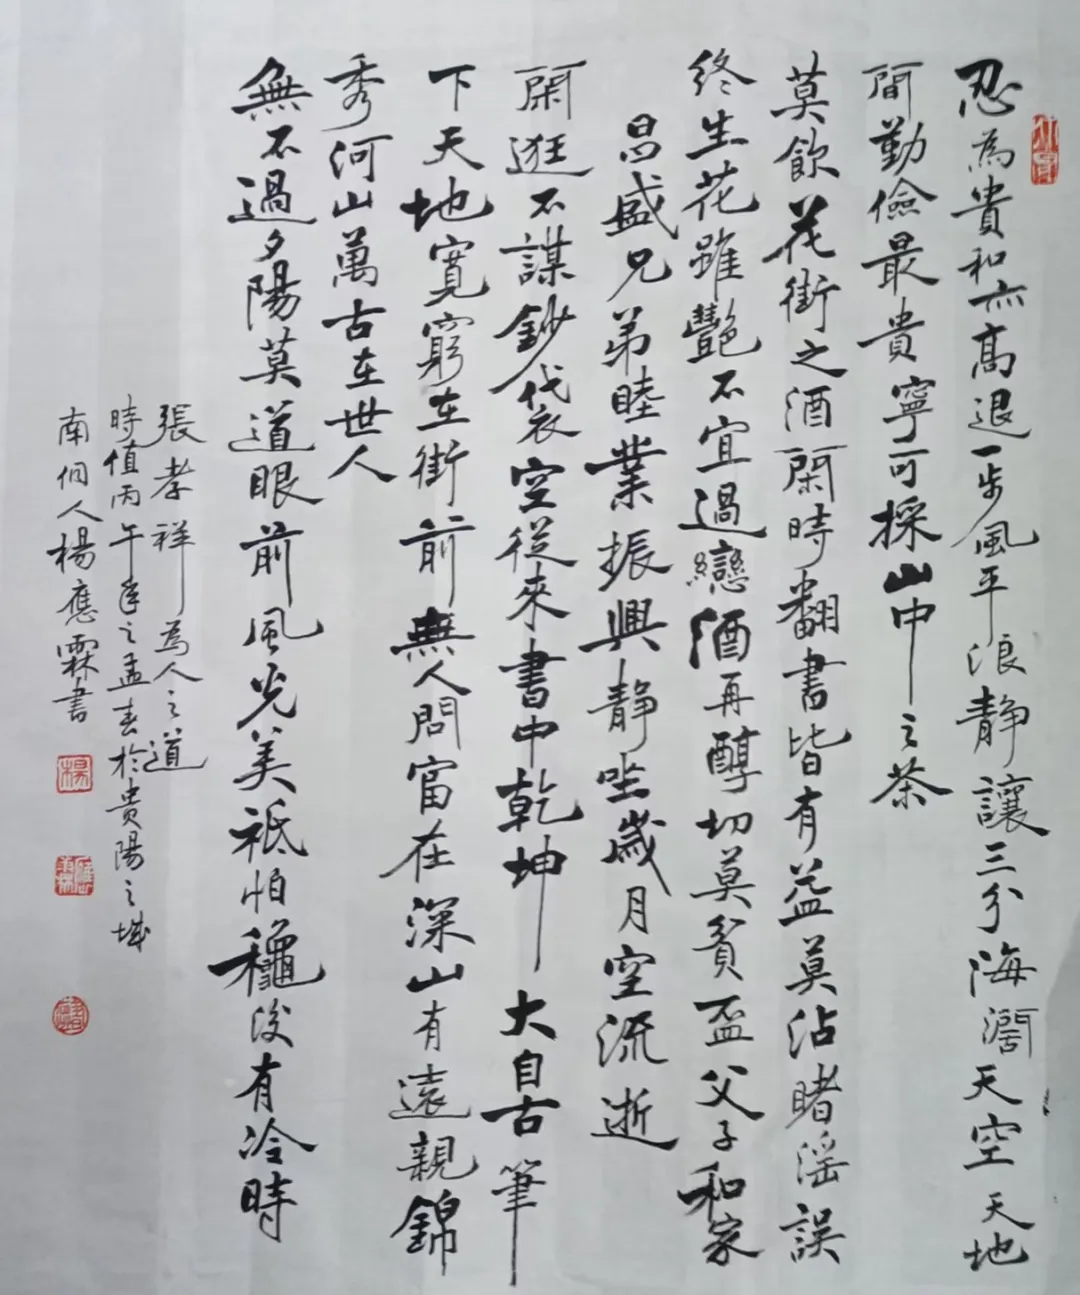 忍為貴和亦高退一步風平浪靜讓三分海濶天空天地
間勤儉最貴寧可採山中之茶
莫飲花街之酒閑時翻書皆有益莫沾賭淫誤
終生花雖艷不宜過戀酒再醇切莫貪盃父子和家
昌盛兄弟睦業振興靜坐歲月空流逝
閑逛不謀鈔袋空從來書中乾坤大自古筆
下天地寬窮在街前無人問富在深山有遠親錦
秀河山萬古在世人
無不過夕陽莫道眼前風光美祗怕龝後有冷時
張孝祥為人之道
時值丙午年之孟春於貴陽之城
南佀人楊應霖書